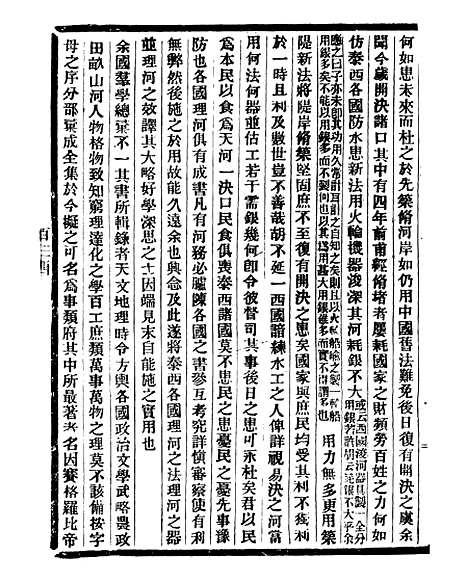 何如患未來而杜之於先築脩河岸如仍用中國舊法難免後日復有開決之虞余
聞今歲開決諸口其中有四年前甫經脩堵者屢耗國家之財頻勞百姓之力何如
仿泰西各國防水患新法用火輪機器浚深其河耗銀不大
或云西國浚河器具製一全分
用銀若許胡云耗銀不大乎余
應之曰子亦未卽其功用久常計耳計之自知之矣則且以火輪船喻之製一輪船
用銀多矣不能以用銀多而不製何也以其爲用甚大用銀雖多而實不得謂名也
用力無多更用築
隄新法將隄岸脩築堅固庶不至復有開決之患矣國家與庶民均受其利不獨
於一時且利及數世豈不善哉胡不延一西國諳練水工之人俾詳視易決之河當
用何法何器並估工若干需銀幾何卽令彼督司其事後日之患可永杜矣君以民
爲本民以食爲天河一決口民食俱喪泰西諸國莫不思民之患憂民之憂先事謀
防也各國理河俱有成書凡有河務必臚陳各國之書參互考究詳愼審察使有利
無弊然後施之於用故能久遠余也興念及此遂將泰西各國理河之法理河之器
並理河之效譯其大略好學深思之士因端見末自能施之實用也
余國羣學總彙不一其書所輯錄者天文地理時令方輿各國政治文學武略農政
田畝山河人物格物致知窮理達化之學百工庶類萬事萬物之理莫不該備按字
母之序分部彙成全集於今擬之可名爲事類府其中所最著者名因賽格羅比帝